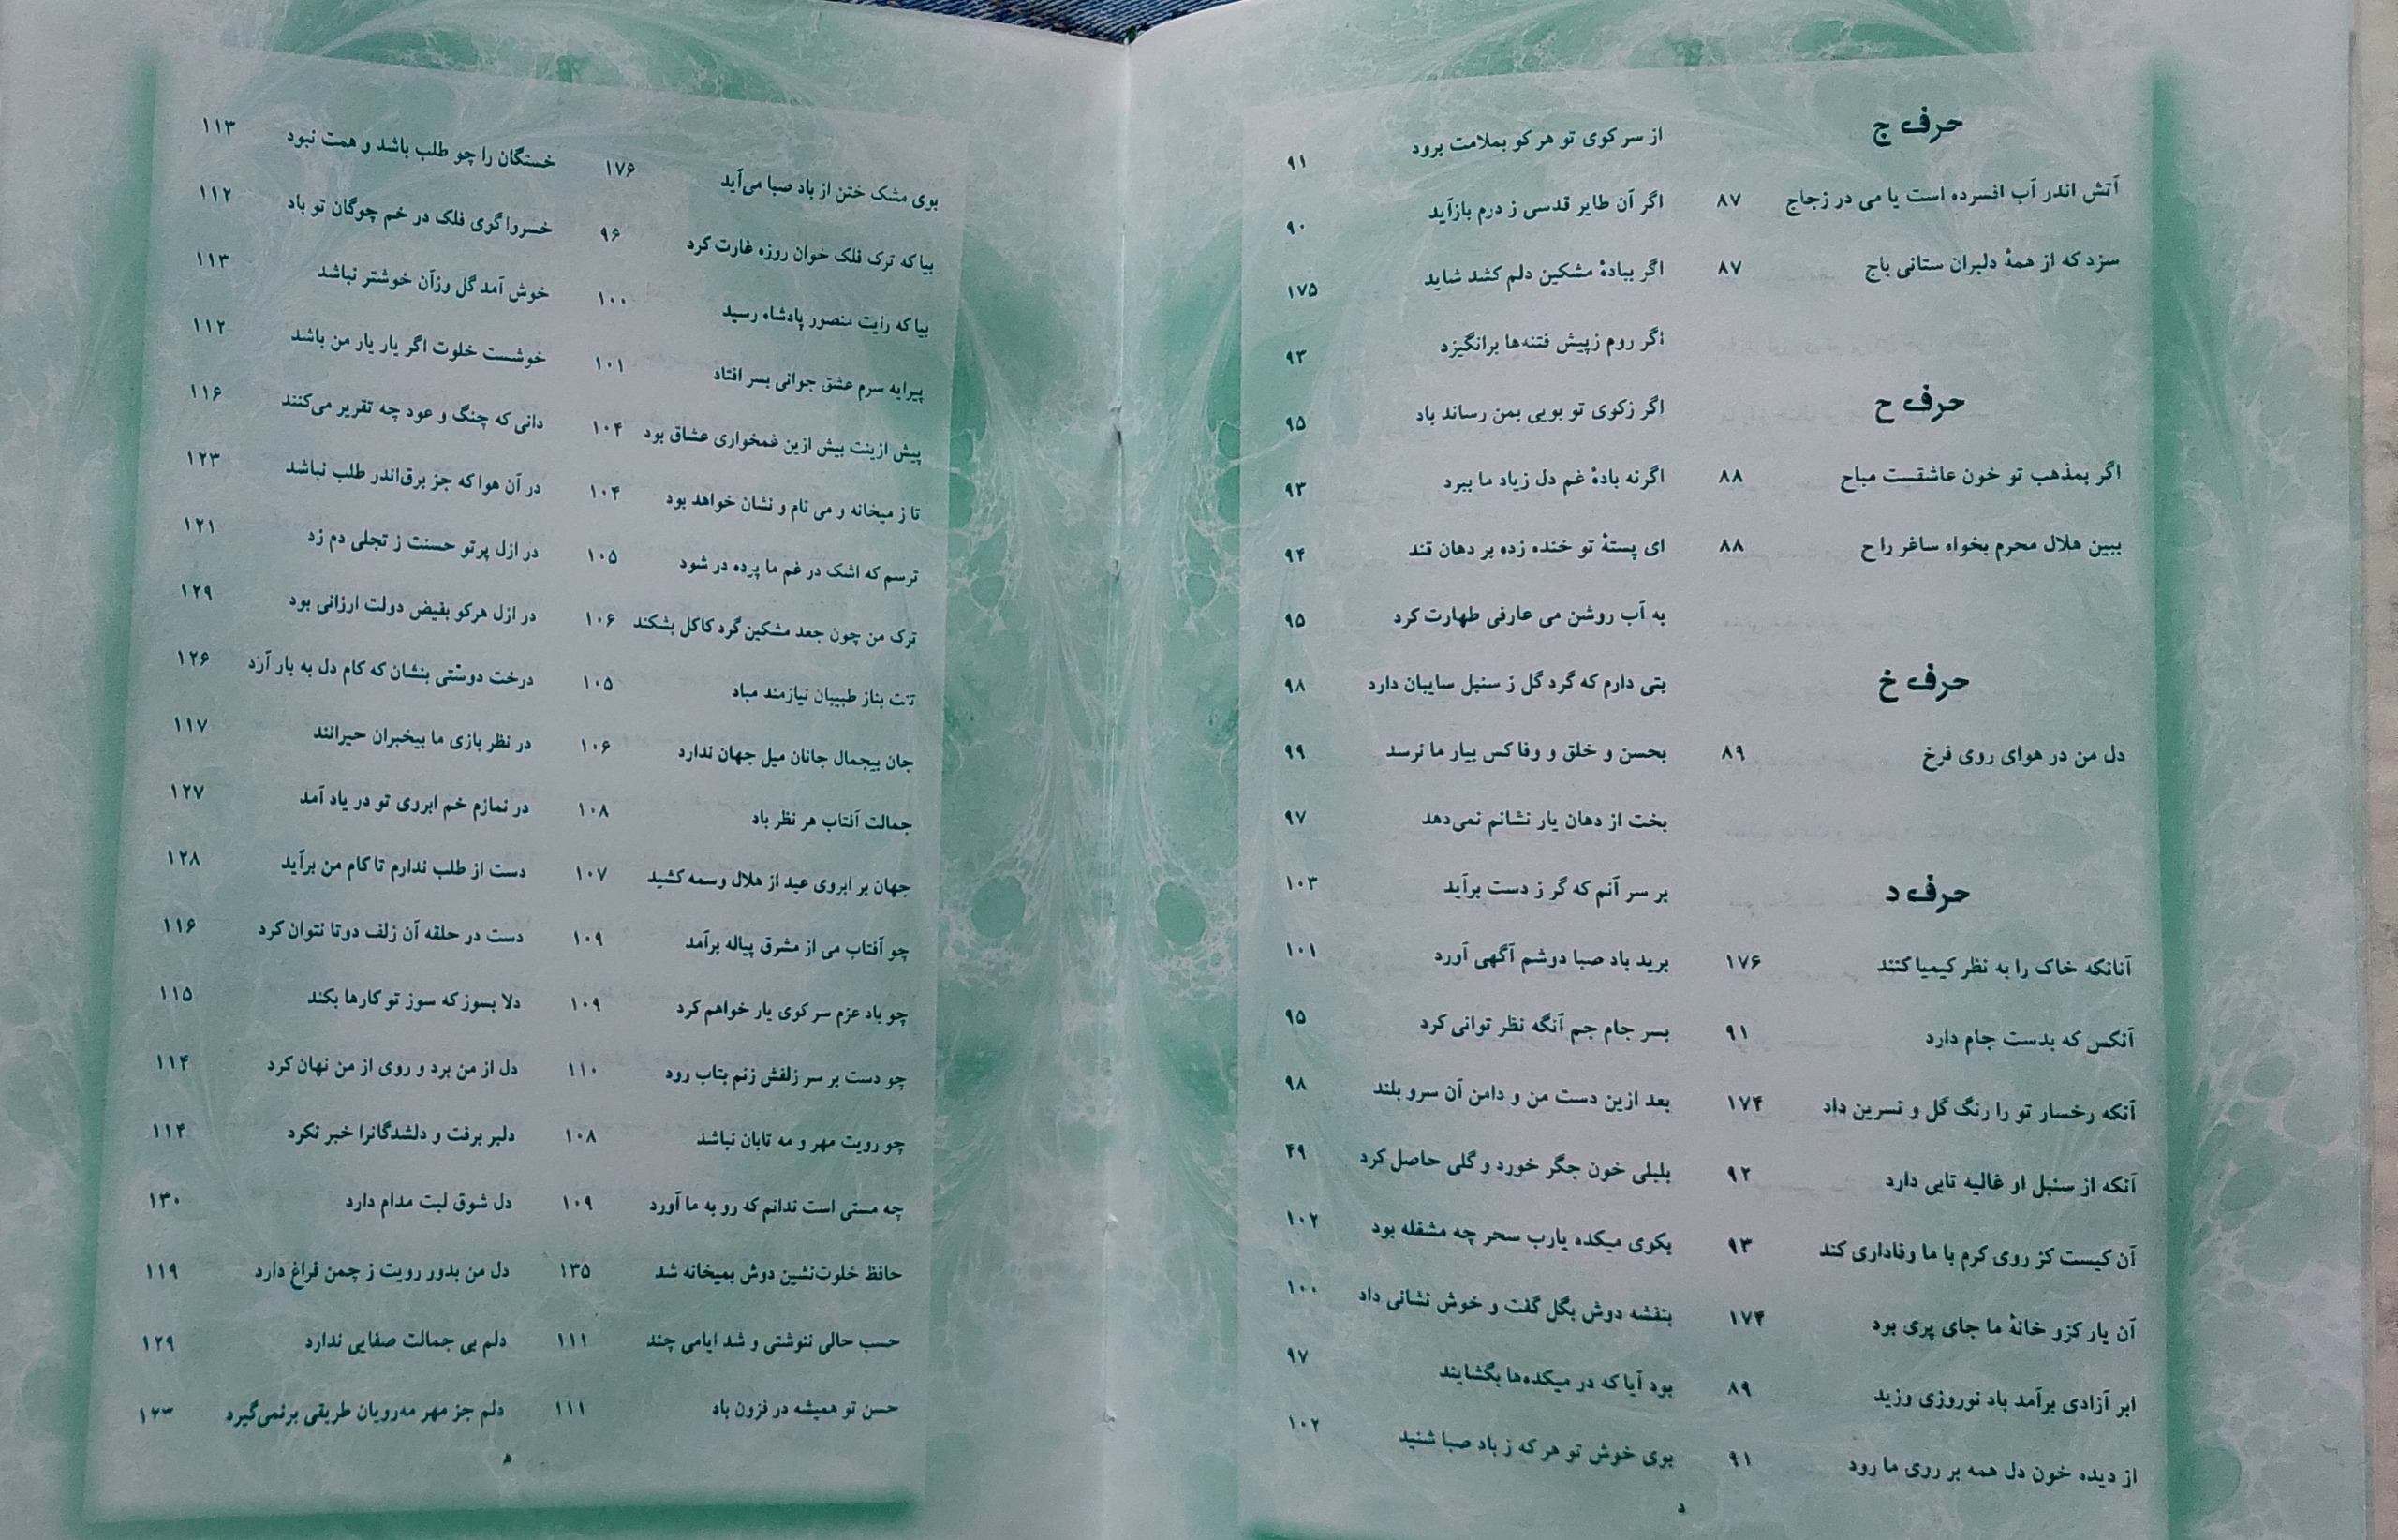 حرف ج
آتش اندر آب افسرده است یا می در زجاج ۸۷
سزد که از همهٔ دلبران ستانی باج ۸۷
حرف ح
اگر بمذهب تو خون عاشقست مباح ۸۸
ببین هلال محرم بخواه ساغر راح ۸۸
حرف خ
دل من در هوای روی فرخ ۸۹
حرف د
آنانکه خاک را به نظر کیمیا کنند ۱۷۶
آنکس که بدست جام دارد ۹۱
آنکه رخسار تو را رنگ گل و نسرین داد ۱۷۴
آنکه از سنبل او غالیه تابی دارد ۹۲
آن کیست کز روی کرم با ما وفاداری کند ۹۳
آن یار کزو خانهٔ ما جای پری بود ۱۷۴
ابر آزادی برآمد باد نوروزی وزید ۸۹
از دیده خون دل همه بر روی ما رود ۹۱
از سر کوی تو هر کو بملامت برود ۹۱
اگر آن طایر قدسی ز درم بازآید ۹۰
اگر بیادهٔ مشکین دلم کشد شاید ۱۷۵
اگر روم زپیش فتنه‌ها برانگیزد ۹۳
اگر زکوی تو بویی بمن رساند باد ۹۵
اگرنه بادهٔ غم دل زیاد ما ببرد ۹۳
ای پستهٔ تو خنده زده بر دهان قند ۹۴
به آب روشن می عارفی طهارت کرد ۹۵
بتی دارم که گرد گل ز سنبل سایبان دارد ۹۸
بحسن و خلق و وفا کس بیار ما نرسد ۹۹
بخت از دهان یار نشانم نمی‌دهد ۹۷
بر سر آنم که گر ز دست برآید ۱۰۳
برید باد صبا دوشم آگهی آورد ۱۰۱
بسر جام جم آنگه نظر توانی کرد ۹۵
بعد ازین دست من و دامن آن سرو بلند ۹۸
بلبلی خون جگر خورد و گلی حاصل کرد ۴۹
بکوی میکده یارب سحر چه مشغله بود ۱۰۲
بنفشه دوش بگل گفت و خوش نشانی داد ۱۰۰
بود آیا که در میکده‌ها بگشایند ۹۷
بوی خوش تو هر که ز باد صبا شنید ۱۰۲
د
بوی مشک ختن از باد صبا می‌آید ۱۷۶
بیا که ترک فلک خوان روزه غارت کرد ۹۶
بیا که رایت منصور پادشاه رسید ۱۰۰
پیرایه سرم عشق جوانی بسر افتاد ۱۰۱
پیش ازینت بیش ازین غمخواری عشاق بود ۱۰۴
تا ز میخانه و می نام و نشان خواهد بود ۱۰۴
ترسم که اشک در غم ما پرده در شود ۱۰۵
ترک من چون جعد مشکین گرد کاکل بشکند ۱۰۶
تنت بناز طبیبان نیازمند مباد ۱۰۵
جان بیجمال جانان میل جهان ندارد ۱۰۶
جمالت آفتاب هر نظر باد ۱۰۸
جهان بر ابروی عید از هلال وسمه کشید ۱۰۷
چو آفتاب می از مشرق پیاله برآمد ۱۰۹
چو باد عزم سر کوی یار خواهم کرد ۱۰۹
چو دست بر سر زلفش زنم بتاب رود ۱۱۰
چو رویت مهر و مه تابان نباشد ۱۰۸
چه مستی است ندانم که رو به ما آورد ۱۰۹
حافظ خلوت‌نشین دوش بمیخانه شد ۱۳۵
حسب حالی ننوشتی و شد ایامی چند ۱۱۱
حسن تو همیشه در فزون باد ۱۱۱
خستگان را چو طلب باشد و همت نبود ۱۱۳
خسروا گوی فلک در خم چوگان تو باد ۱۱۲
خوش آمد گل وزآن خوشتر نباشد ۱۱۳
خوشست خلوت اگر یار یار من باشد ۱۱۲
دانی که چنگ و عود چه تقریر می‌کنند ۱۱۶
در آن هوا که جز برق‌اندر طلب نباشد ۱۲۳
در ازل پرتو حسنت ز تجلی دم زد ۱۲۱
در ازل هرکو بفیض دولت ارزانی بود ۱۲۹
درخت دوستی بنشان که کام دل به بار آرد ۱۲۶
در نظر بازی ما بیخبران حیرانند ۱۱۷
در نمازم خم ابروی تو در یاد آمد ۱۲۷
دست از طلب ندارم تا کام من برآید ۱۲۸
دست در حلقه آن زلف دوتا نتوان کرد ۱۱۶
دلا بسوز که سوز تو کارها بکند ۱۱۵
دل از من برد و روی از من نهان کرد ۱۱۴
دلبر برفت و دلشدگانرا خبر نکرد ۱۱۴
دل شوق لبت مدام دارد ۱۳۰
دل من بدور رویت ز چمن فراغ دارد ۱۱۹
دلم بی جمالت صفایی ندارد ۱۲۹
دلم جز مهر مه‌رویان طریقی برنمی‌گیرد ۱۲۳
ه